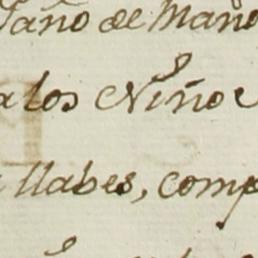 año de Maño
a los Niños
llabes, comp